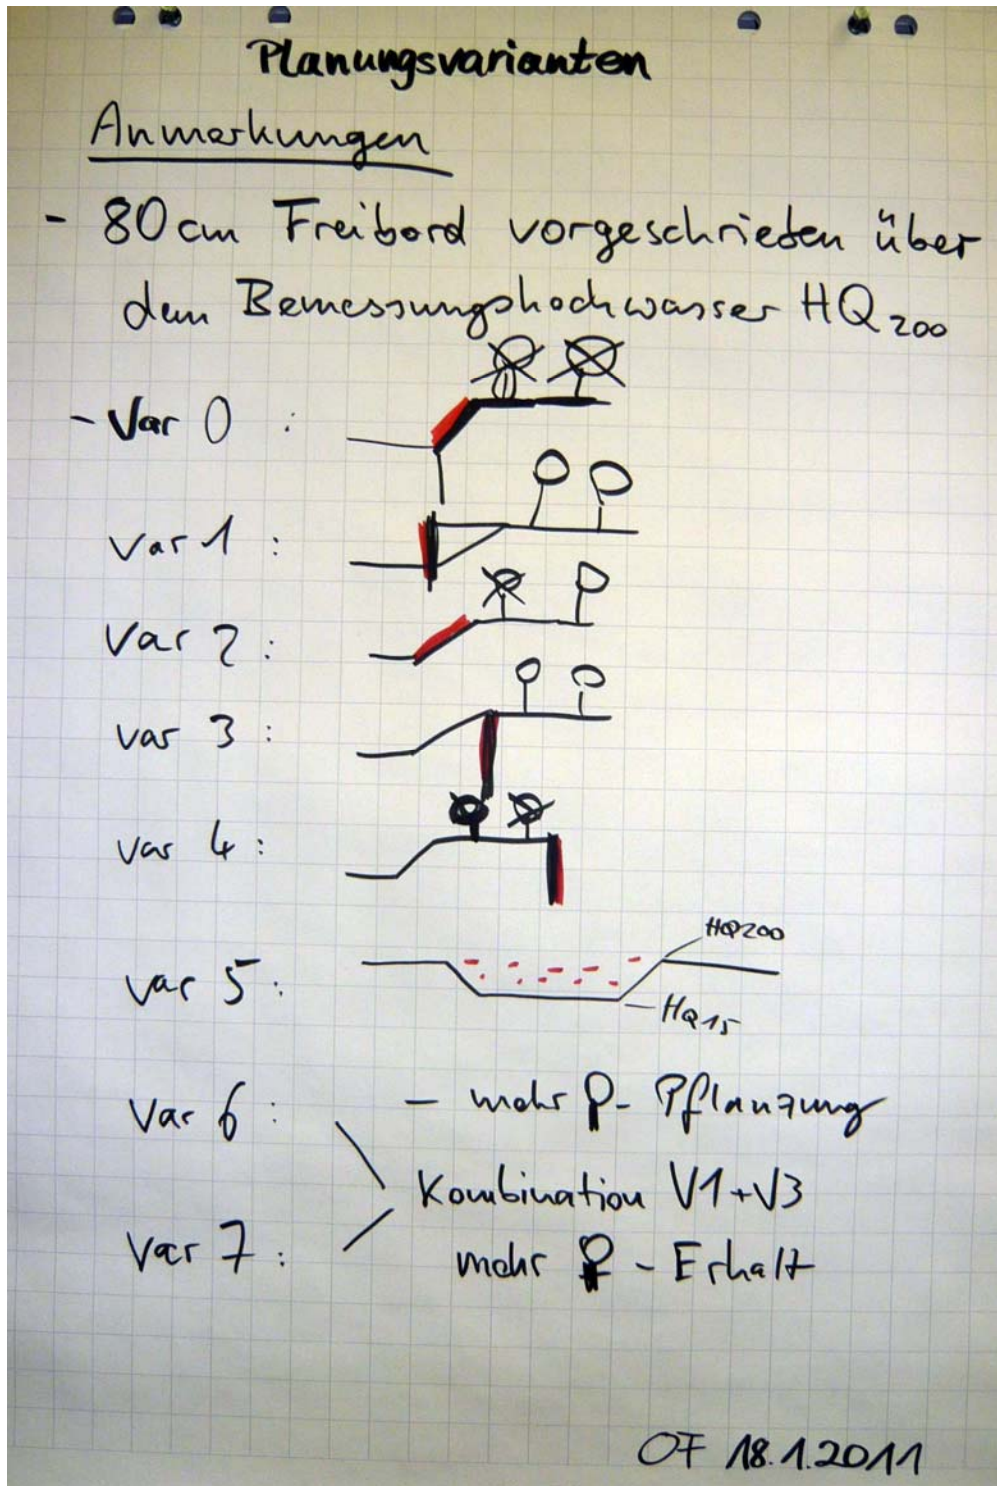 Planungsvarianten
Anmerkungen
- 80 cm Freibord vorgeschrieben über
dem Bemessungshochwasser HQ200
- Var 0 :
Var 1 :
Var 2 :
Var 3 :
Var 4 :
HQ200
Var 5 :
HQ15
Var 6 : - mehr - Pflanzung
Kombination V1+V3
Var 7 : mehr - Erhalt
OF 18.1.2011